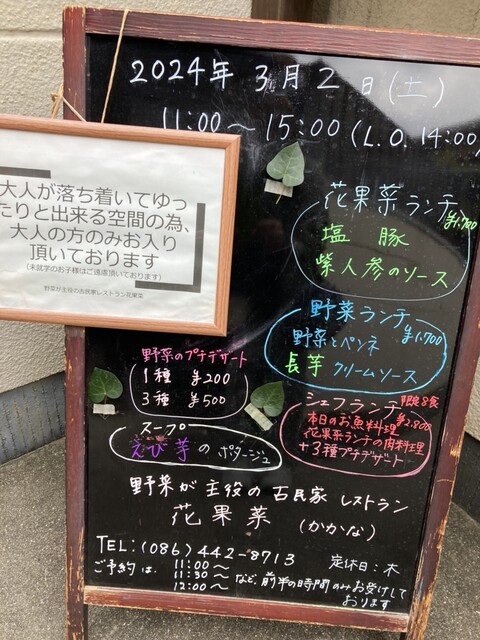 2024年 3月 2日(土)
11:00〜15:00(L.O. 14:00)
大人が落ち着いてゆっ
たりと出来る空間の為、
大人の方のみお入り
頂いております
(未就学のお子様はご遠慮頂いております)
野菜が主役の古民家レストラン花果菜
花果菜ランチ
¥1,700
塩豚
紫人参のソース
野菜ランチー
¥1,700
野菜とペンネ
長芋クリームソース
野菜のプチデザート
1種 ¥200
3種 ¥500
シェフランチ 限定8食
¥2,800
本日のお魚料理
花果菜ランチの肉料理
+3種プチデザート
スープ
えび芋のポタージュ
野菜が主役の古民家レストラン
花果菜 (かかな)
TEL:(086)442-8713
定休日:木
ご予約は、
11:00〜
11:30〜
12:00〜
など、前半の時間のみお受けして
おります